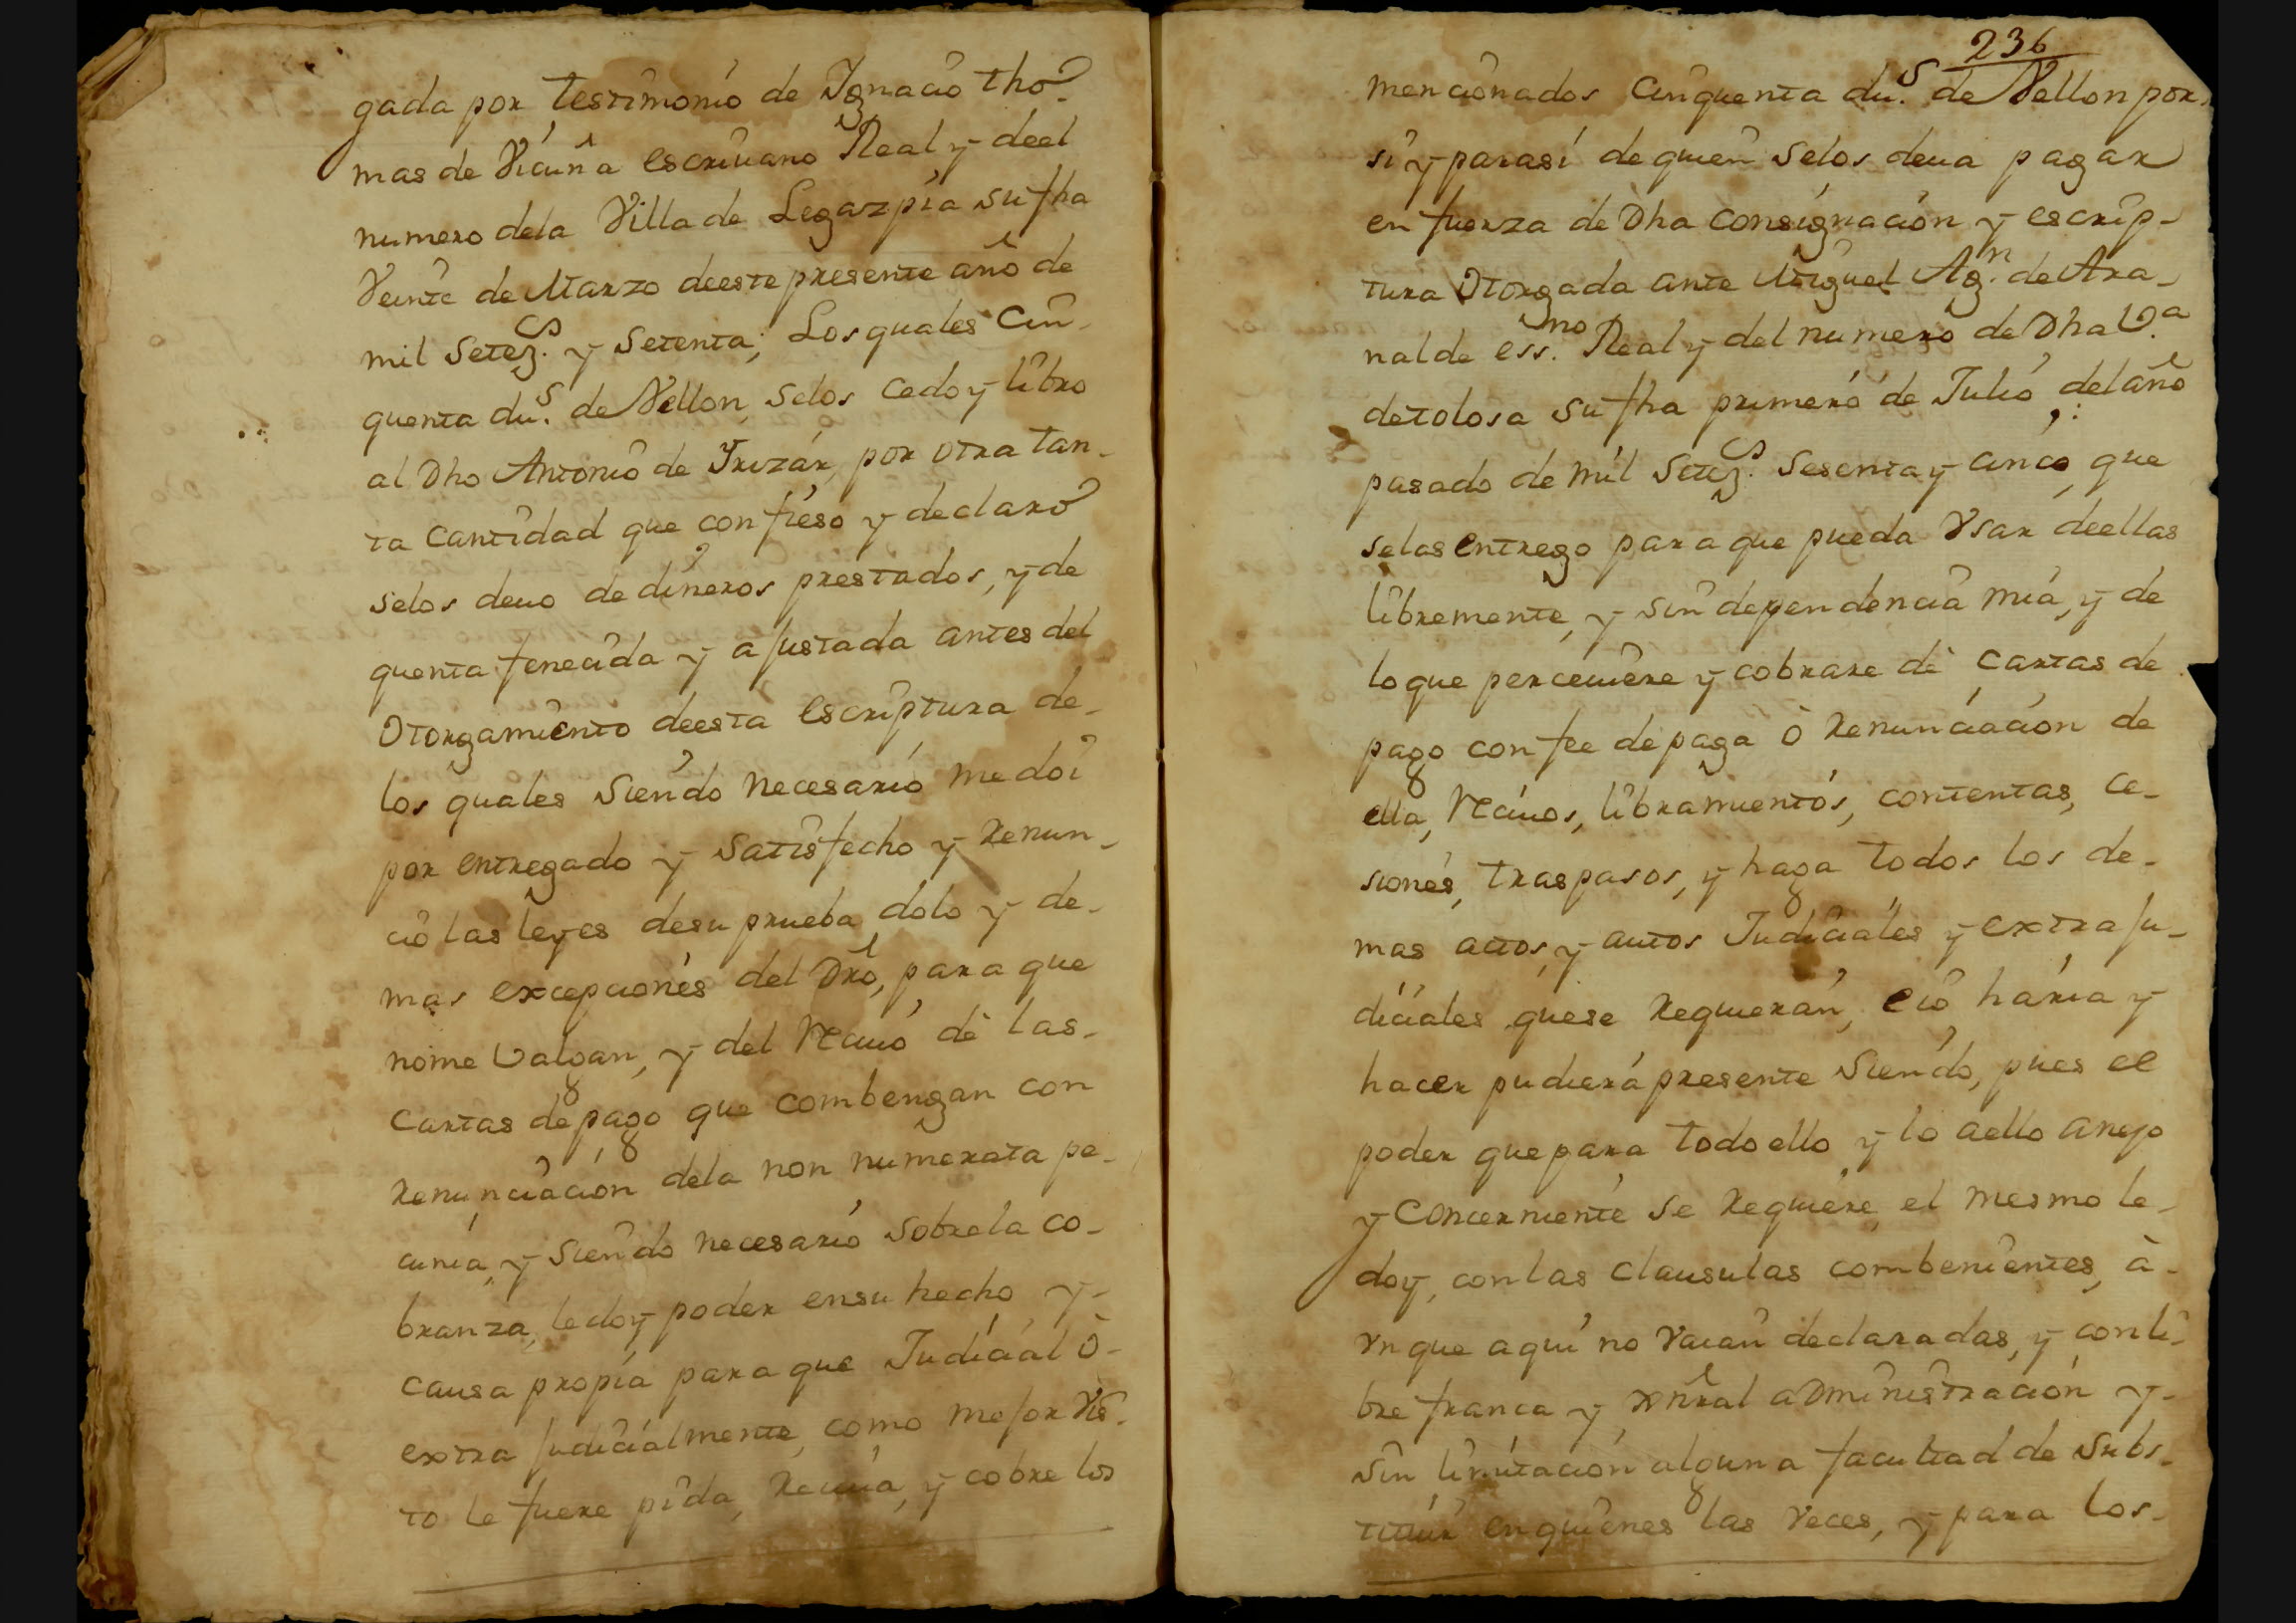 gada por testimonio de Ygnacio tho-
mas de Vicuña escriuano Real y deel
numero dela Villa de Legazpia su fha
Veinte de Marzo deeste presente año de
mil setez.s y setenta; Los quales Cin-
quenta du.s de Vellon selos cedo y libro
al Dho Antonio de Yrizár, por otra tan-
ta cantidad que confieso y declaro
selos deuo de dineros prestados, y de
quenta fenecida y ajustada antes del
otorgamiento deesta escriptura de-
los quales siendo necesario me doi
por entregado y satisfecho y renun-
cio las leyes desu prueba dolo y de-
mas excepciones del Dro, para que
nome valgan, y del Reciuo dè las-
cartas de pago que combengan con
renunciacion dela non numerata pe-
cunia, y siendo necesario sobrela co-
branza, ledoy poder ensu hecho y-
causa propia para que Judicial ò-
extra judicialmente, como mejor vis-
to le fuere pida, reciua, y cobre los
236
mencionados cinquenta du.s de Vellon por
si y parasi de quien selos deua pagar
en fuerza de Dha consignacion y escrip-
tura otorgada ante Miguel Ag.n de Ara-
nalde ess.no Real y del numero de Dha V.a
detolosa su fha primero de Julio del año
pasado de mil setez.s sesenta y cinco que
selas entrego para que pueda vsar deellas
libremente, y sin dependencia mia, y de
loque perceuiere y cobrare dè cartas de
pago con fee de paga ò renunciacion de
ella, Reciuos, libramientos, contentas, ce-
siones, traspasos, y haga todos los de-
mas actos, y autos Judiciales y extraju-
diciales quese requieran, e io haria y
hacer pudiera presente siendo, pues el
poder que para todo ello y lo aello anejo
y concerniente se requiere, el mesmo le-
doy, con las clausulas combenientes, à-
vn que aqui no vaian declaradas, y con li-
bre franca y gñral administracion y-
sin limitacion alguna facultad de subs-
tituir en quienes las veces, y para los-